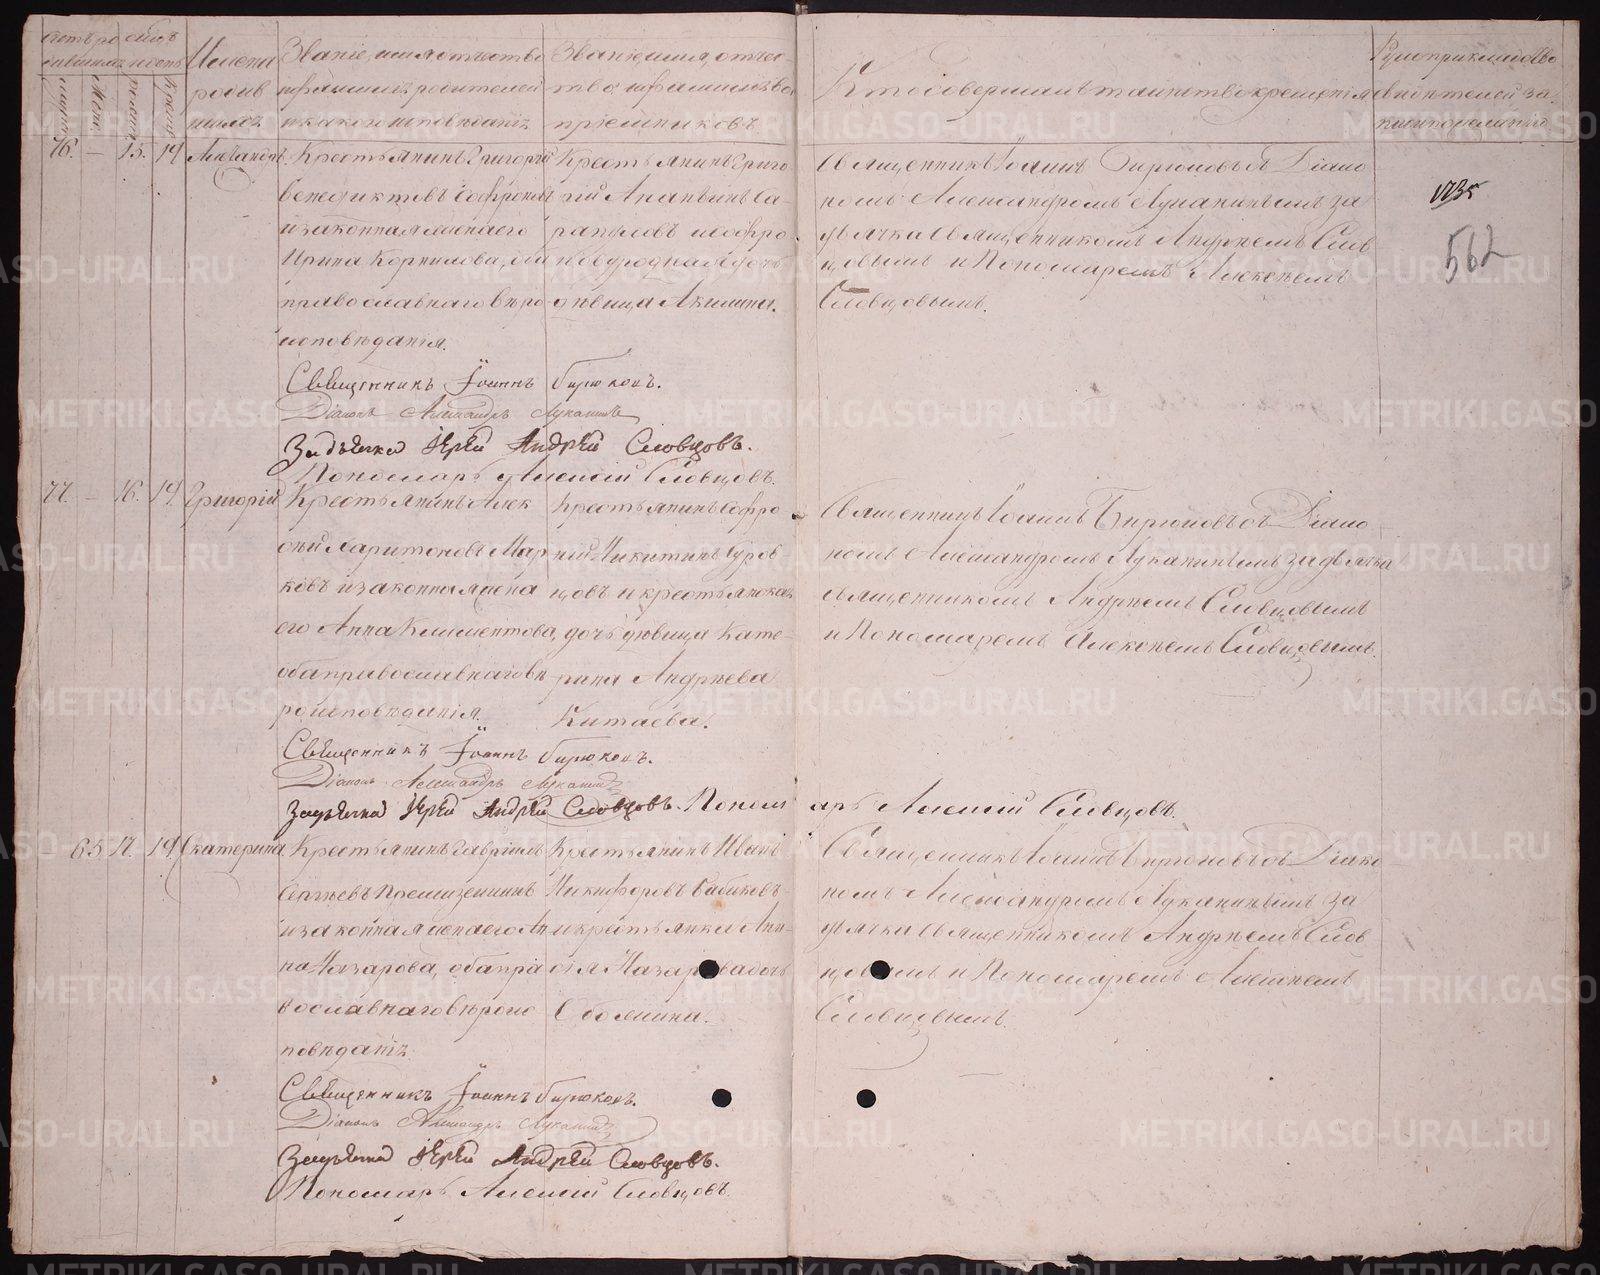 Счетъ родившихся
Мѣсяцъ и день
Имена родившихся
Званіе, имя, отчество и фамилія родителей и какого исповѣданія
Званіе, имя, отчество и фамилія воспріемниковъ
Кто совершалъ таинство крещенія
Рукоприкладство свидѣтелей записи по желанію
76. — 15. 19 Александръ
Крестьянинъ Григорій
Венедиктовъ Софроновъ
и законная жена его
Ирина Корнилова, оба
православнаго вѣро-
исповѣданія.
Крестьянинъ Григо-
рій Ананьинъ Са-
рапуловъ и Софро-
нову родная дочь
дѣвица Акилина.
Священникъ Іоаннъ Бирюковъ съ Діако-
номъ Александромъ Луканинымъ за
дьячка Священникомъ Андреемъ Слов
цовымъ и Пономаремъ Алексѣемъ
Словцовымъ.
1735
562
Священникъ Іоаннъ Бирюковъ.
Діаконъ Александръ Луканинъ
За дьячка Іерей Андрей Словцовъ.
Пономарь Алексій Словцовъ.
77. — 16. 19. Григорій
Крестьянинъ Алек
сѣй Харитоновъ Мар
ковъ и законная жена
его Анна Климентова,
оба православнаго вѣ
роисповѣданія.
Крестьянинъ Софро
ній Никитинъ Суров-
цовъ и крестьянская
дочь дѣвица Кате-
рина Андреева
Китаева.
Священникъ Іоаннъ Бирюковъ съ Діако
номъ Александромъ Луканинымъ за дьячка
Священникомъ Андреемъ Словцовымъ
и Пономаремъ Алексѣемъ Словцовымъ.
Священникъ Іоаннъ Бирюковъ.
Діаконъ Александръ Луканинъ
За дьячка Іерей Андрей Словцовъ. Пономарь Алексій Словцовъ.
65 17. 19. Екатерина
Крестьянинъ Гавріилъ
Сергѣевъ
и законная жена его Ан
на Назарова, оба пра
вославнаго вѣроис
повѣданія.
Крестьянинъ Иванъ
Никифоровъ Бабиковъ
и крестьянка Анн-
Назарова дочь
Священникъ Іоаннъ Бирюковъ съ Діако
номъ Александромъ Луканинымъ за
дьячка Священникомъ Андреемъ Слов
цовымъ и Пономаремъ Алексѣемъ
Словцовымъ.
Священникъ Іоаннъ Бирюковъ.
Діаконъ Александръ Луканинъ
За дьячка Іерей Андрей Словцовъ.
Пономарь Алексій Словцовъ.
METRIKI.GASO-URAL.RU